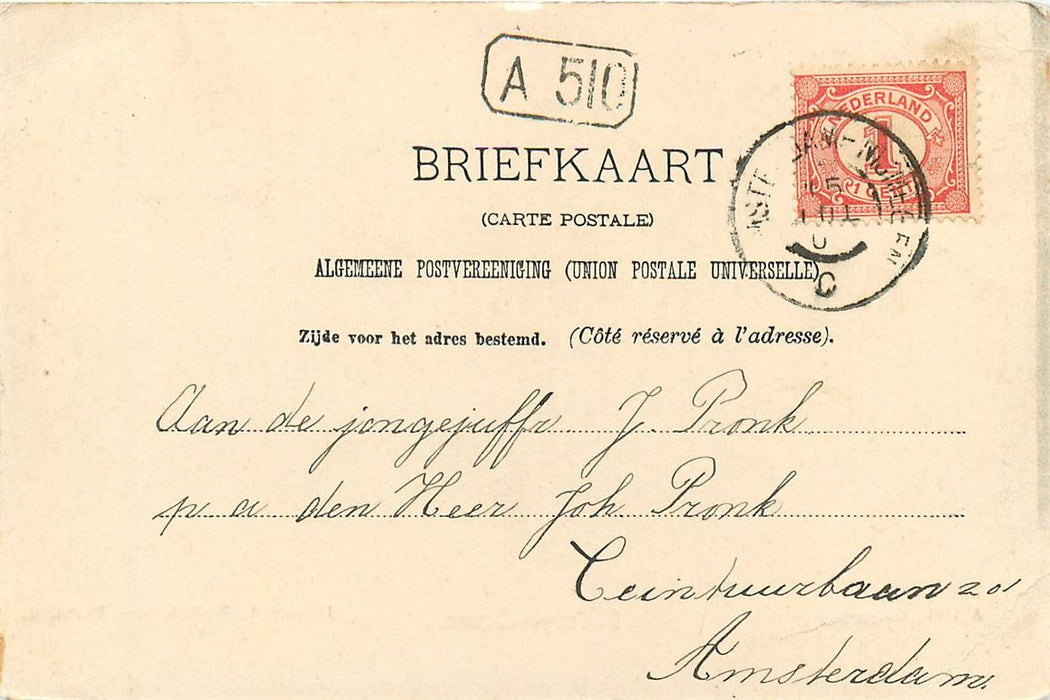 A 510
NEDERLAND
1
BRIEFKAART
(CARTE POSTALE)
ALGEMEENE POSTVEREENIGING (UNION POSTALE UNIVERSELLE)
C
Zijde voor het adres bestemd. (Côté réservé à l'adresse).
Aan de jongejuffr J. Pronk
p a den Heer Joh Pronk
Ceintuurbaan 201
Amsterdam